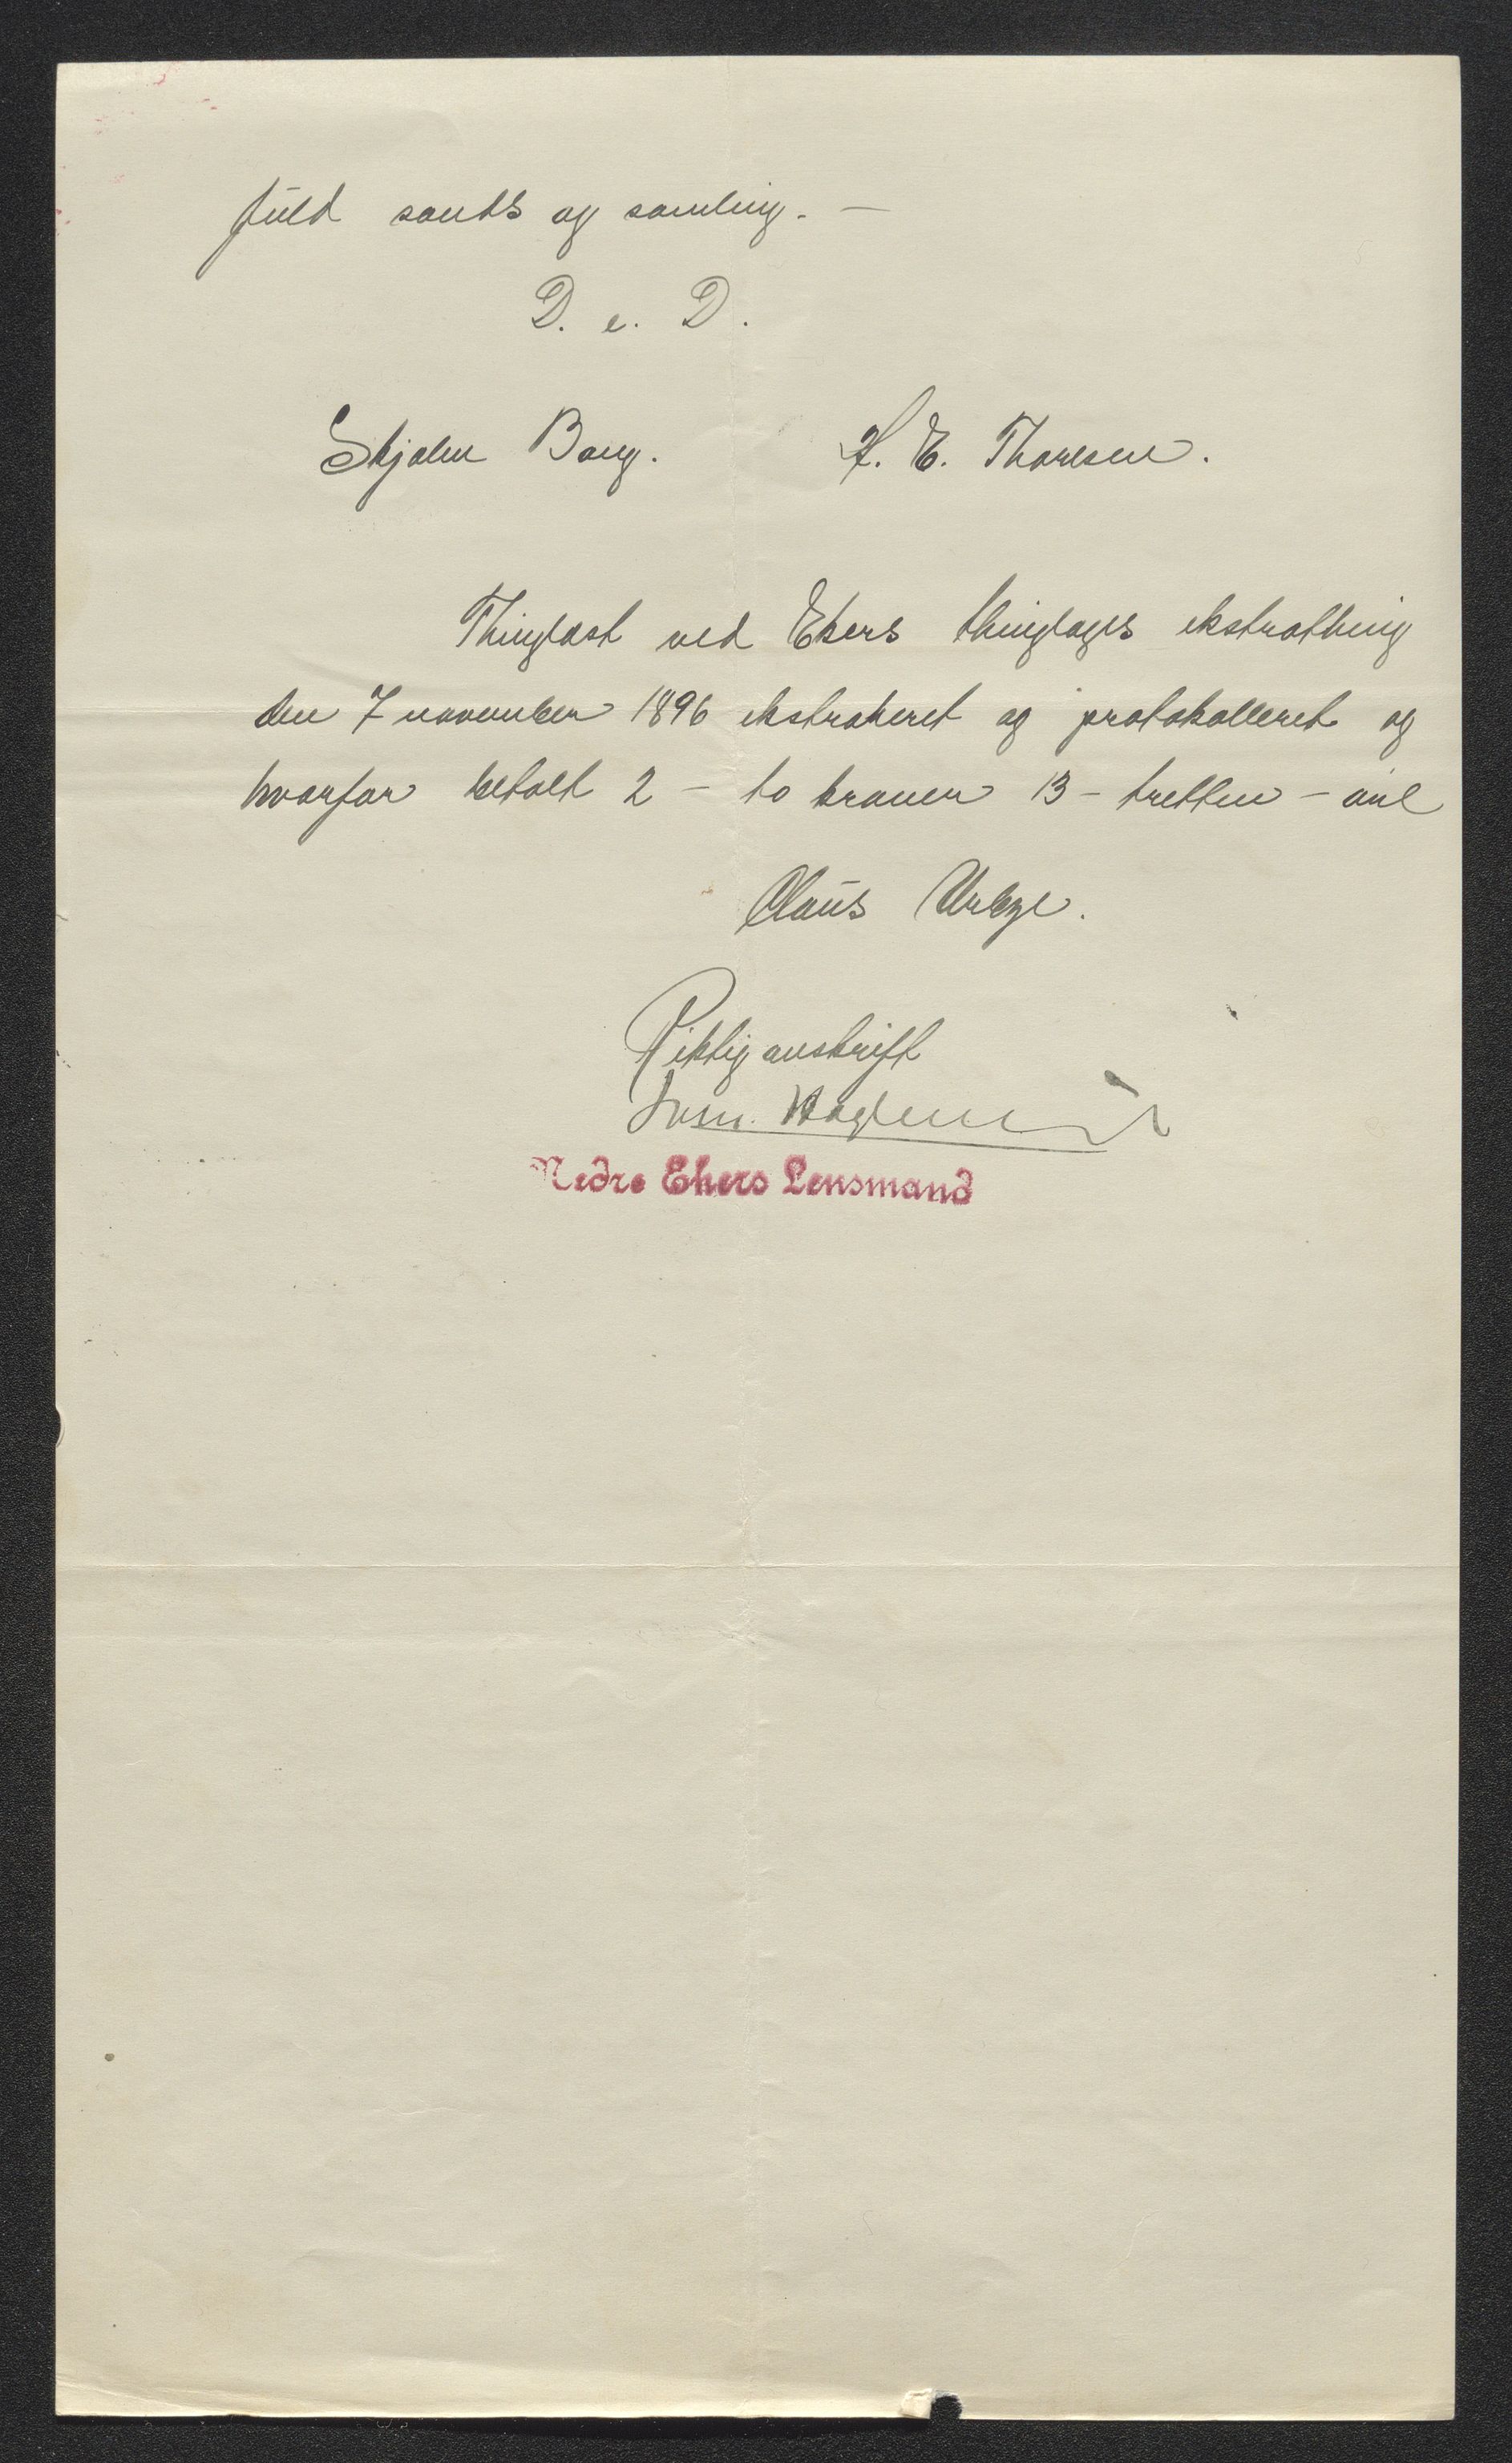 fuld sands og samling. —
D. e. D.
Skjalm Bang. H. E. Thoresen.
Thinglæst ved Ekers thinglages ekstrathing
den 7 november 1896 ekstraheret og protokolleret og
hvorfor betalt 2 – to kroner 13 – tretten – øre
Claus Urbye.
Riktig avskrift
Nedre Ekers Lensmand